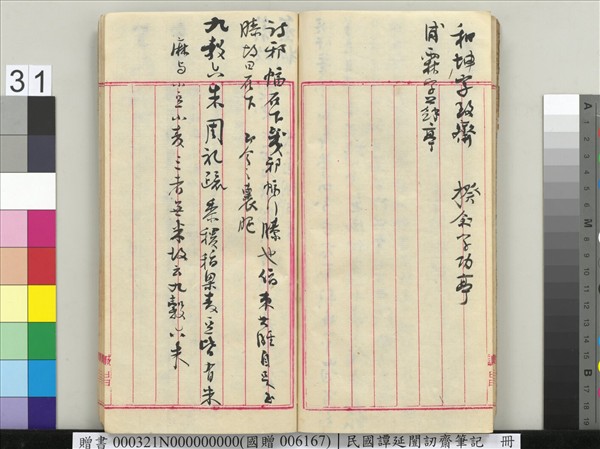 和坤字致齋 揆字功亭
浦霖字亭
詩邪幅在下箋邪幅行縢也偪束其脛自足至
膝故曰在下 今之裹腿
九穀六米周禮疏黍稷稻粱豆皆有米
麻与小豆小麦三者無米故云九穀六米
31
贈書 000321N000000000(國贈 006167) 民國譚延闓訒齋筆記 冊